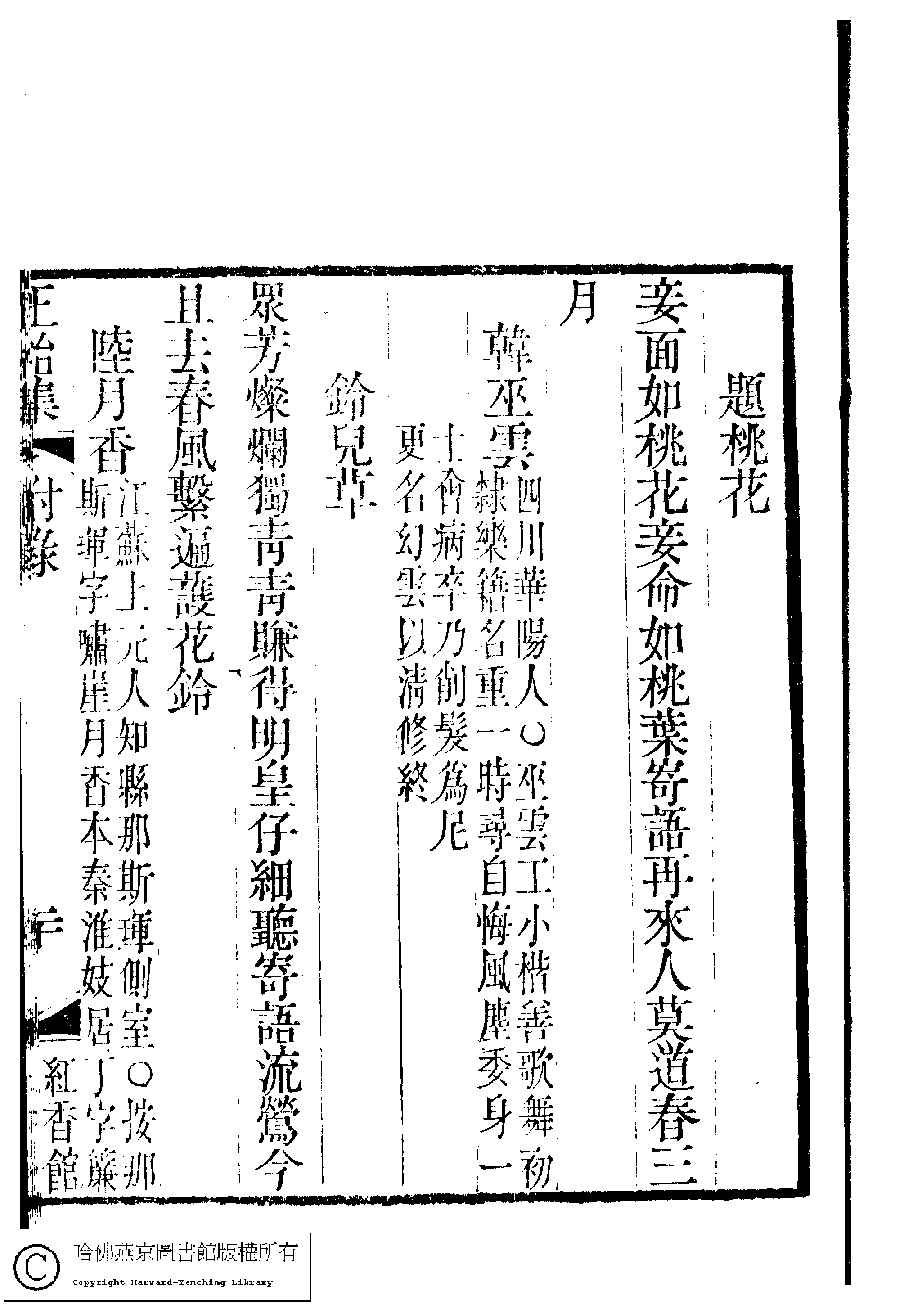 題桃花
妾面如桃花妾命如桃葉寄語再來人莫道春三
月
韓巫雲
四川華陽人○巫雲工小楷善歌舞初
隸樂籍名重一時尋自悔風塵委身一
士會病卒乃削髮爲尼
更名幻雲以清修終
鈴兒草
眾芳燦爛獨青青賺得明皇仔細聽寄語流鶯今
且去春風繫遍護花鈴
陸月香
江蘇上元人知縣那斯琿側室○按那
斯琿字嘯崖月香本秦淮妓居丁字簾
正始集 附錄 紅香館
哈佛燕京圖書館版權所有
Copyright Harvard-Yenching Library